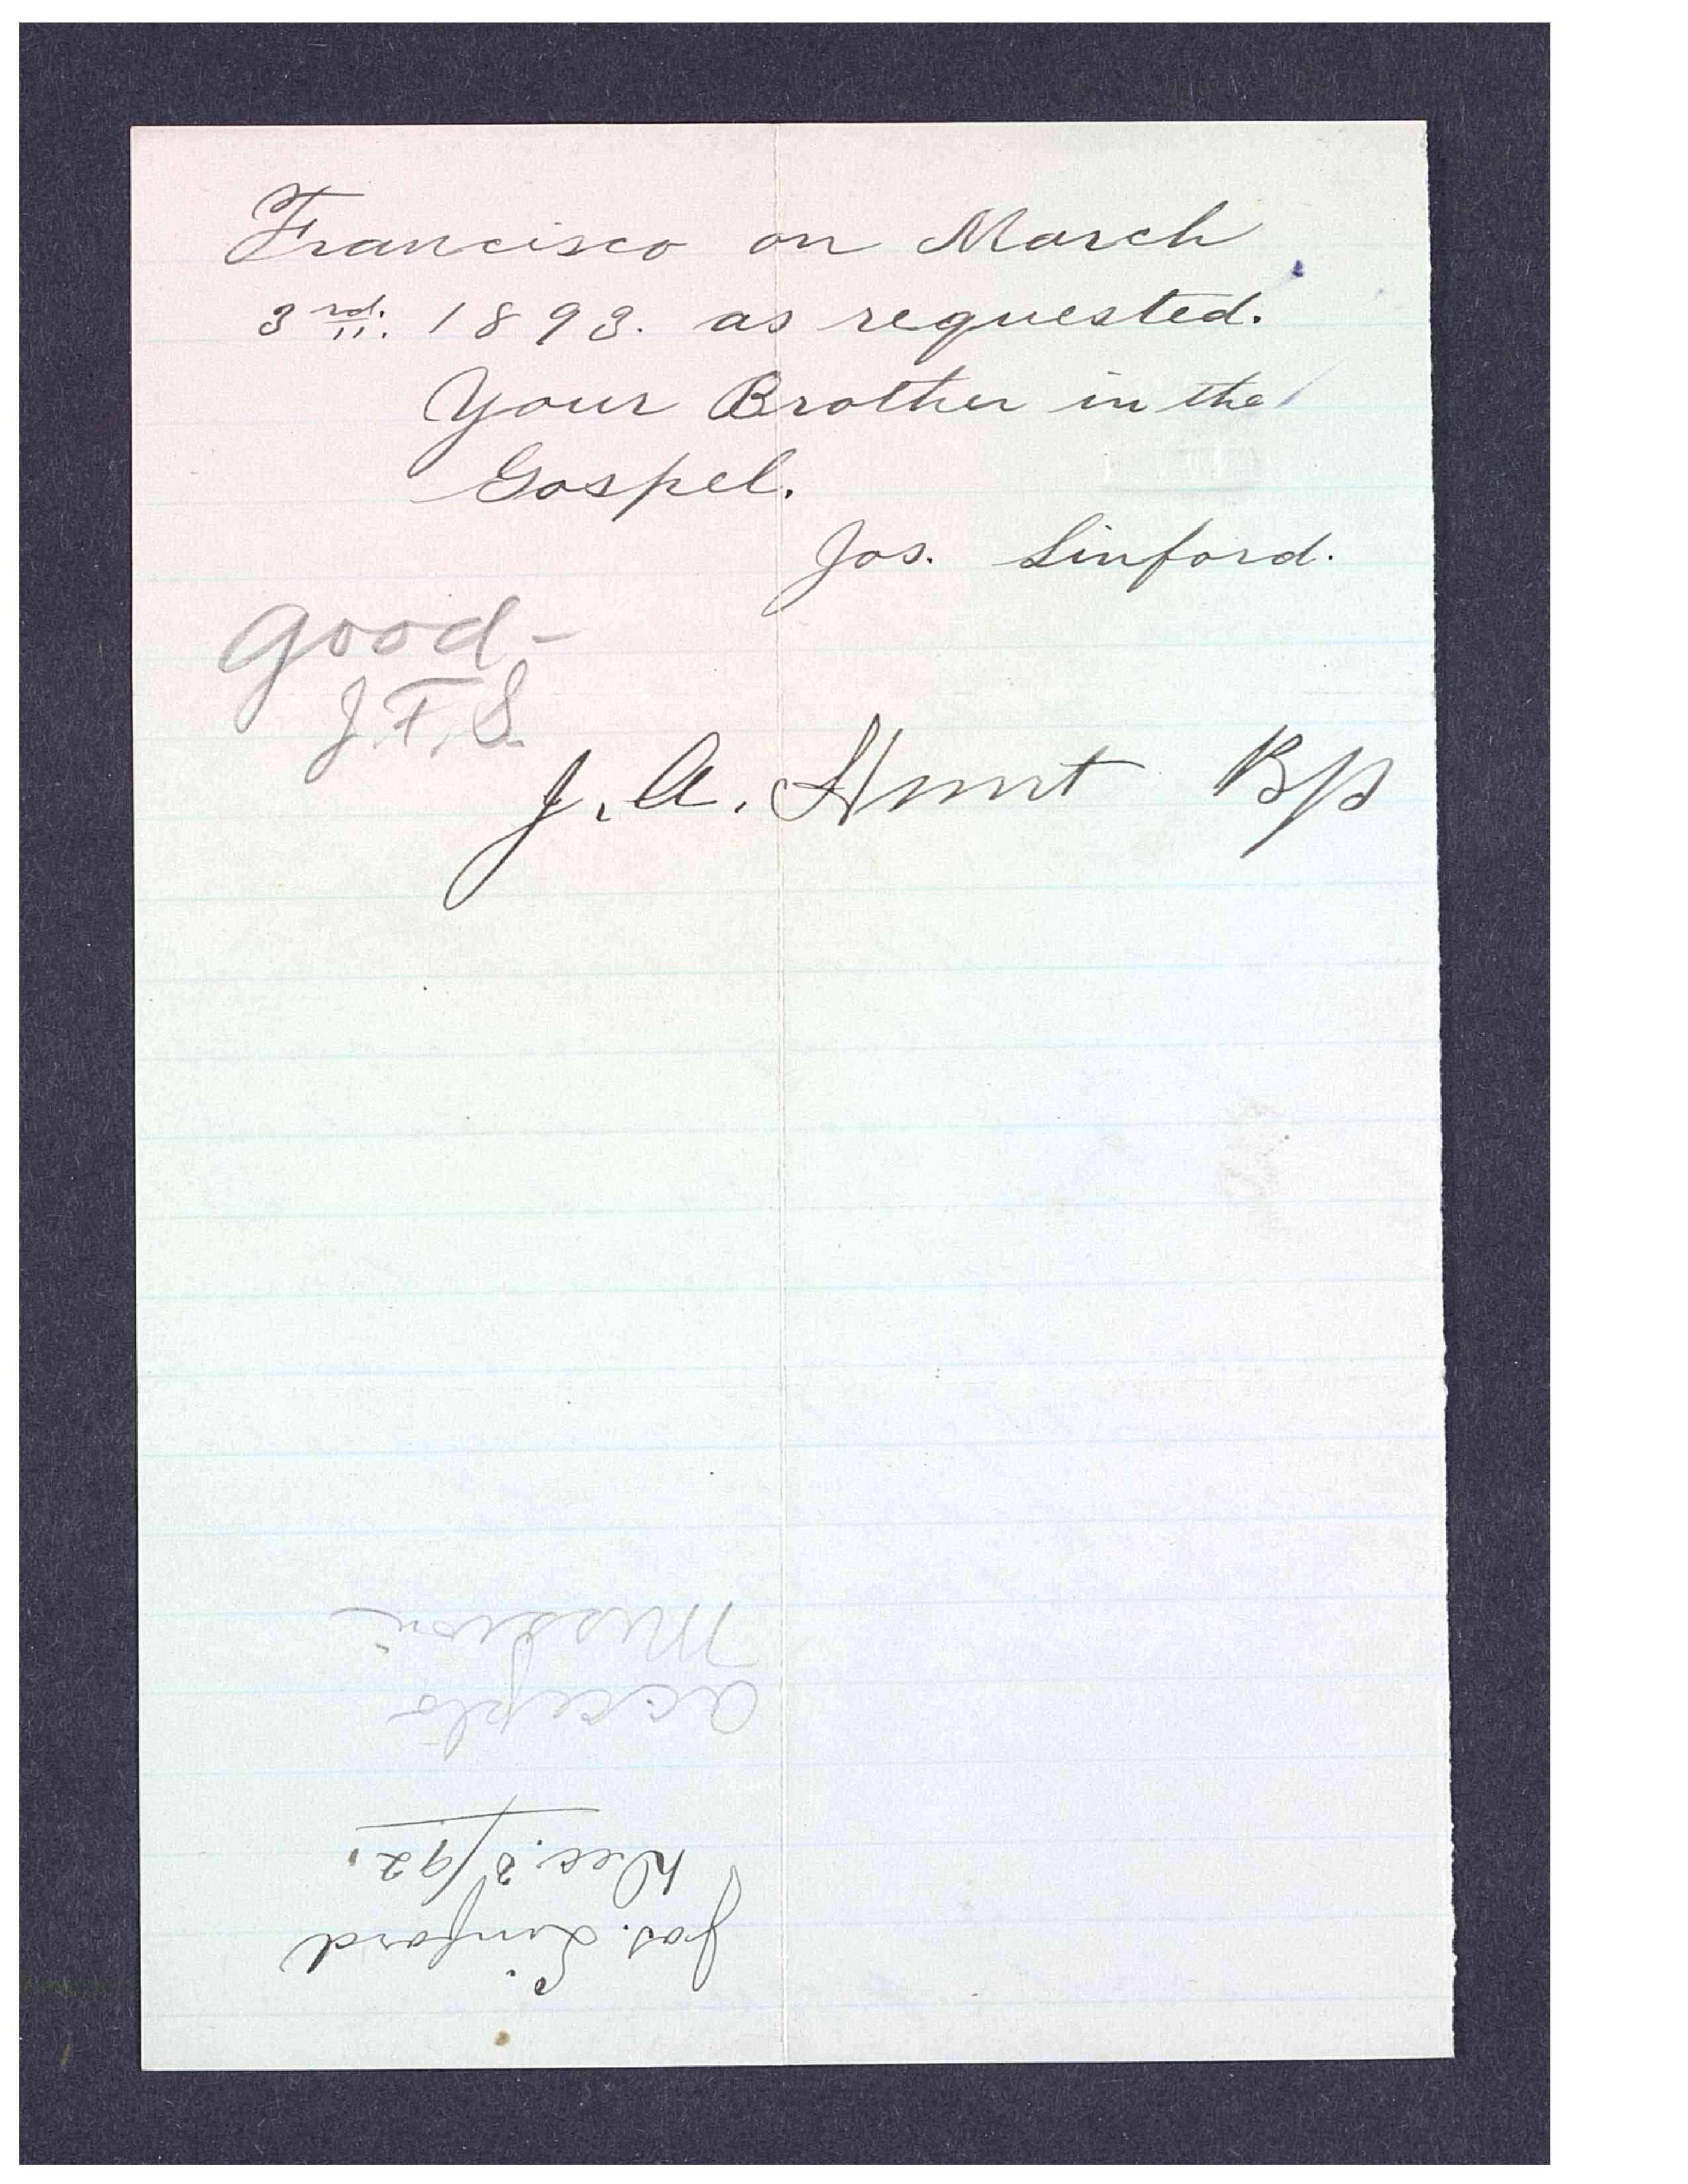 Francisco on March
3rd. 1893. as requested.
Your Brother in the
Gospel.
Jos. Linford.
Good-
J.F.S.
J. A. Hunt Bp
Jos. Linford
Dec. 3/92.
accepts
Mission